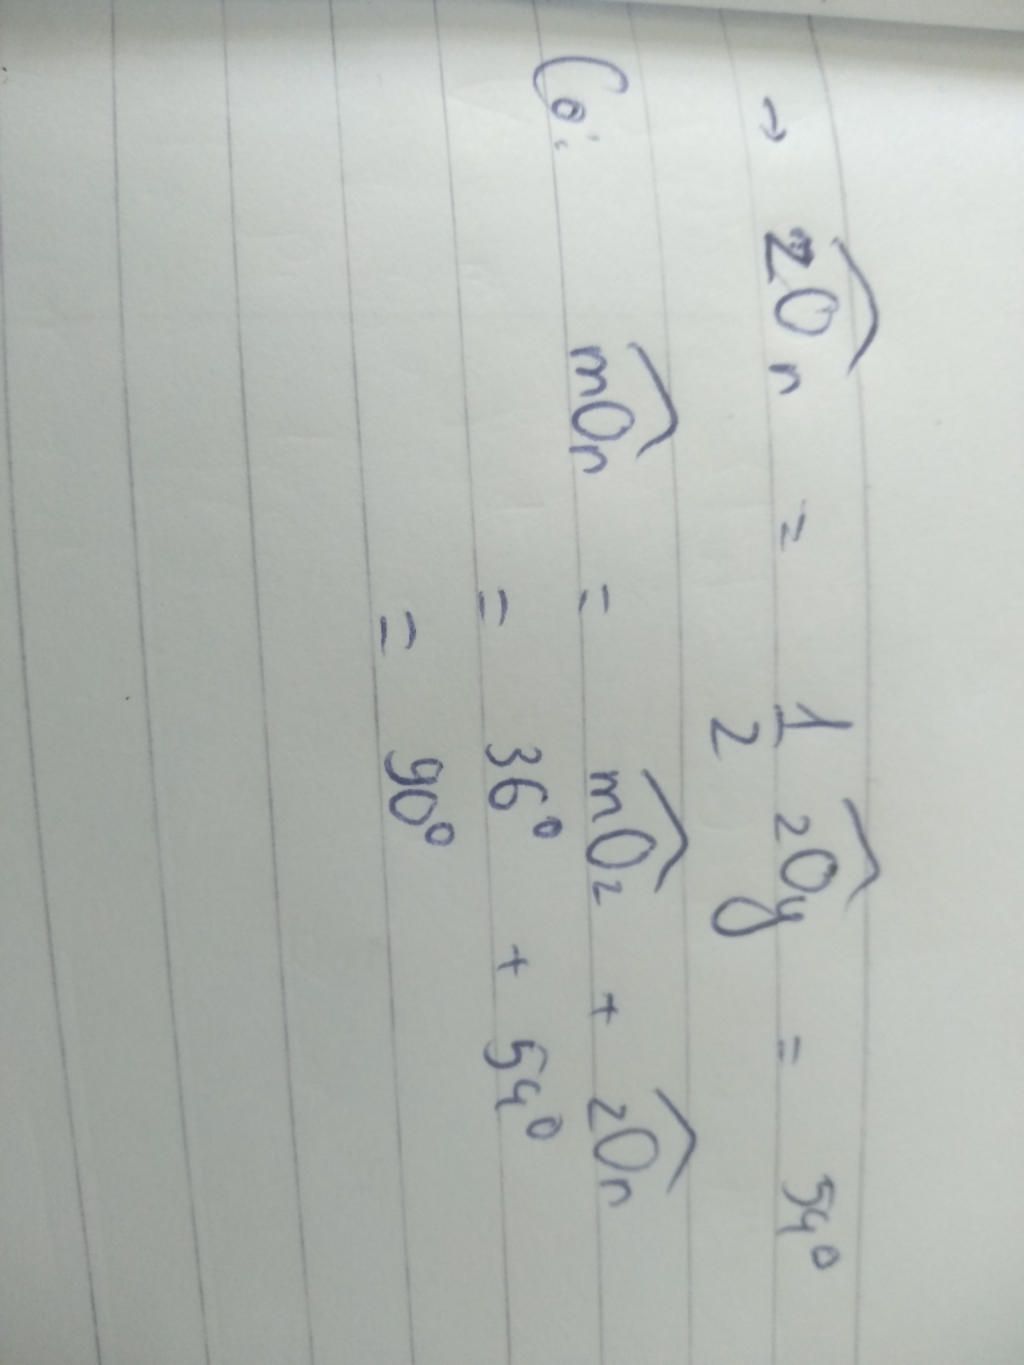 → zOn = 1/2 zOy = 54°
Có: mOn = mOz + zOn
= 36° + 54°
= 90°